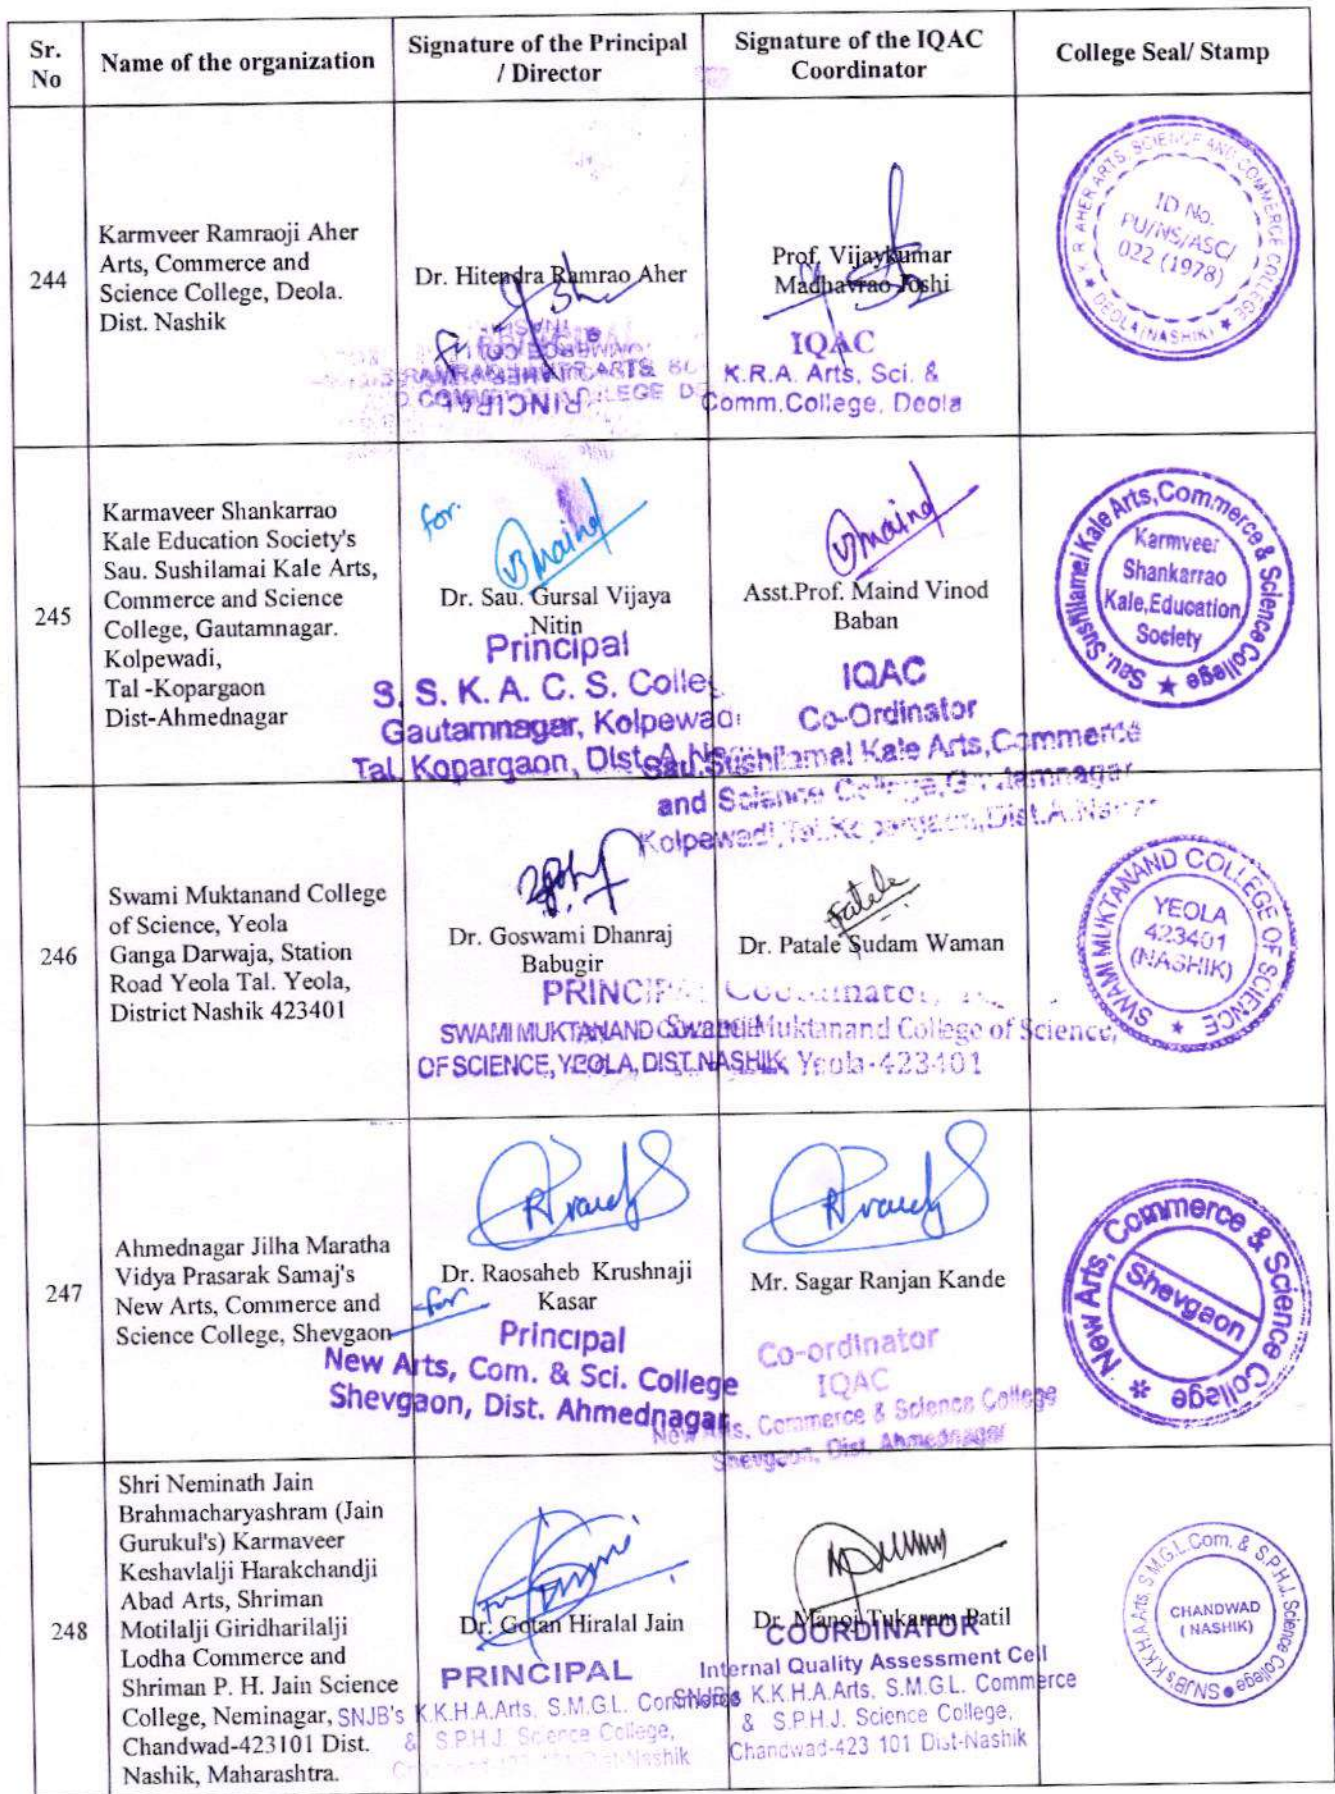 Sr. No
Name of the organization
Signature of the Principal / Director
Signature of the IQAC Coordinator
College Seal/ Stamp
244
Karmveer Ramraoji Aher
Arts, Commerce and
Science College, Deola.
Dist. Nashik
Dr. Hitendra Ramrao Aher
PRINCIPAL
Prof. Vijaykumar
Madhavrao Joshi
IQAC
K.R.A. Arts, Sci. &
Comm.College, Deola
K. R. AHER ARTS, SCIENCE AND COMMERCE COLLEGE
★ DEOLA (NASHIK) ★
ID No.
PU/NS/ASC/
022 (1978)
245
Karmaveer Shankarrao
Kale Education Society's
Sau. Sushilamai Kale Arts,
Commerce and Science
College, Gautamnagar.
Kolpewadi,
Tal -Kopargaon
Dist-Ahmednagar
for.
Dr. Sau. Gursal Vijaya
Nitin
Principal
S. S. K. A. C. S. Colleg
Gautamnagar, Kolpewadi
Tal. Kopargaon, Dist.
Asst.Prof. Maind Vinod
Baban
IQAC
Co-Ordinator
Sau.Sushilamai Kale Arts,Commerce
and Science College,Gautamnagar
Kolpewadi,Tal.Kopargaon,Dist.A.Nagar
Sau. Sushilamai Kale Arts,Commerce & Science College ★
Karmveer
Shankarrao
Kale,Education
Society
246
Swami Muktanand College
of Science, Yeola
Ganga Darwaja, Station
Road Yeola Tal. Yeola,
District Nashik 423401
Dr. Goswami Dhanraj
Babugir
PRINCIPAL
SWAMI MUKTANAND
OF SCIENCE, YEOLA, DIST.NASHIK
Patale
Dr. Patale Sudam Waman
Swami Muktanand College of Science,
Yeola-423401
SWAMI MUKTANAND COLLEGE OF SCIENCE ★
YEOLA
423401
(NASHIK)
247
Ahmednagar Jilha Maratha
Vidya Prasarak Samaj's
New Arts, Commerce and
Science College, Shevgaon
Dr. Raosaheb Krushnaji
Kasar
for
Principal
New Arts, Com. & Sci. College
Shevgaon, Dist. Ahmednagar
Mr. Sagar Ranjan Kande
Co-ordinator
IQAC
New Arts, Commerce & Science College
Shevgaon, Dist. Ahmednagar
New Arts, Commerce & Science College
Shevgaon
248
Shri Neminath Jain
Brahmacharyashram (Jain
Gurukul's) Karmaveer
Keshavlalji Harakchandji
Abad Arts, Shriman
Motilalji Giridharilalji
Lodha Commerce and
Shriman P. H. Jain Science
College, Neminagar,
Chandwad-423101 Dist.
Nashik, Maharashtra.
Dr. Gotan Hiralal Jain
PRINCIPAL
SNJB's K.K.H.A.Arts, S.M.G.L. Commerce
& S.P.H.J. Science College,
Dist-Nashik
Dr. Manoj Tukaram Patil
COORDINATOR
Internal Quality Assessment Cell
SNJB's K.K.H.A.Arts, S.M.G.L. Commerce
& S.P.H.J. Science College,
Chandwad-423 101 Dist-Nashik
SNJB's K.K.H.A.Arts, S.M.G.L.Com. & S.P.H.J. Science College
CHANDWAD
( NASHIK)